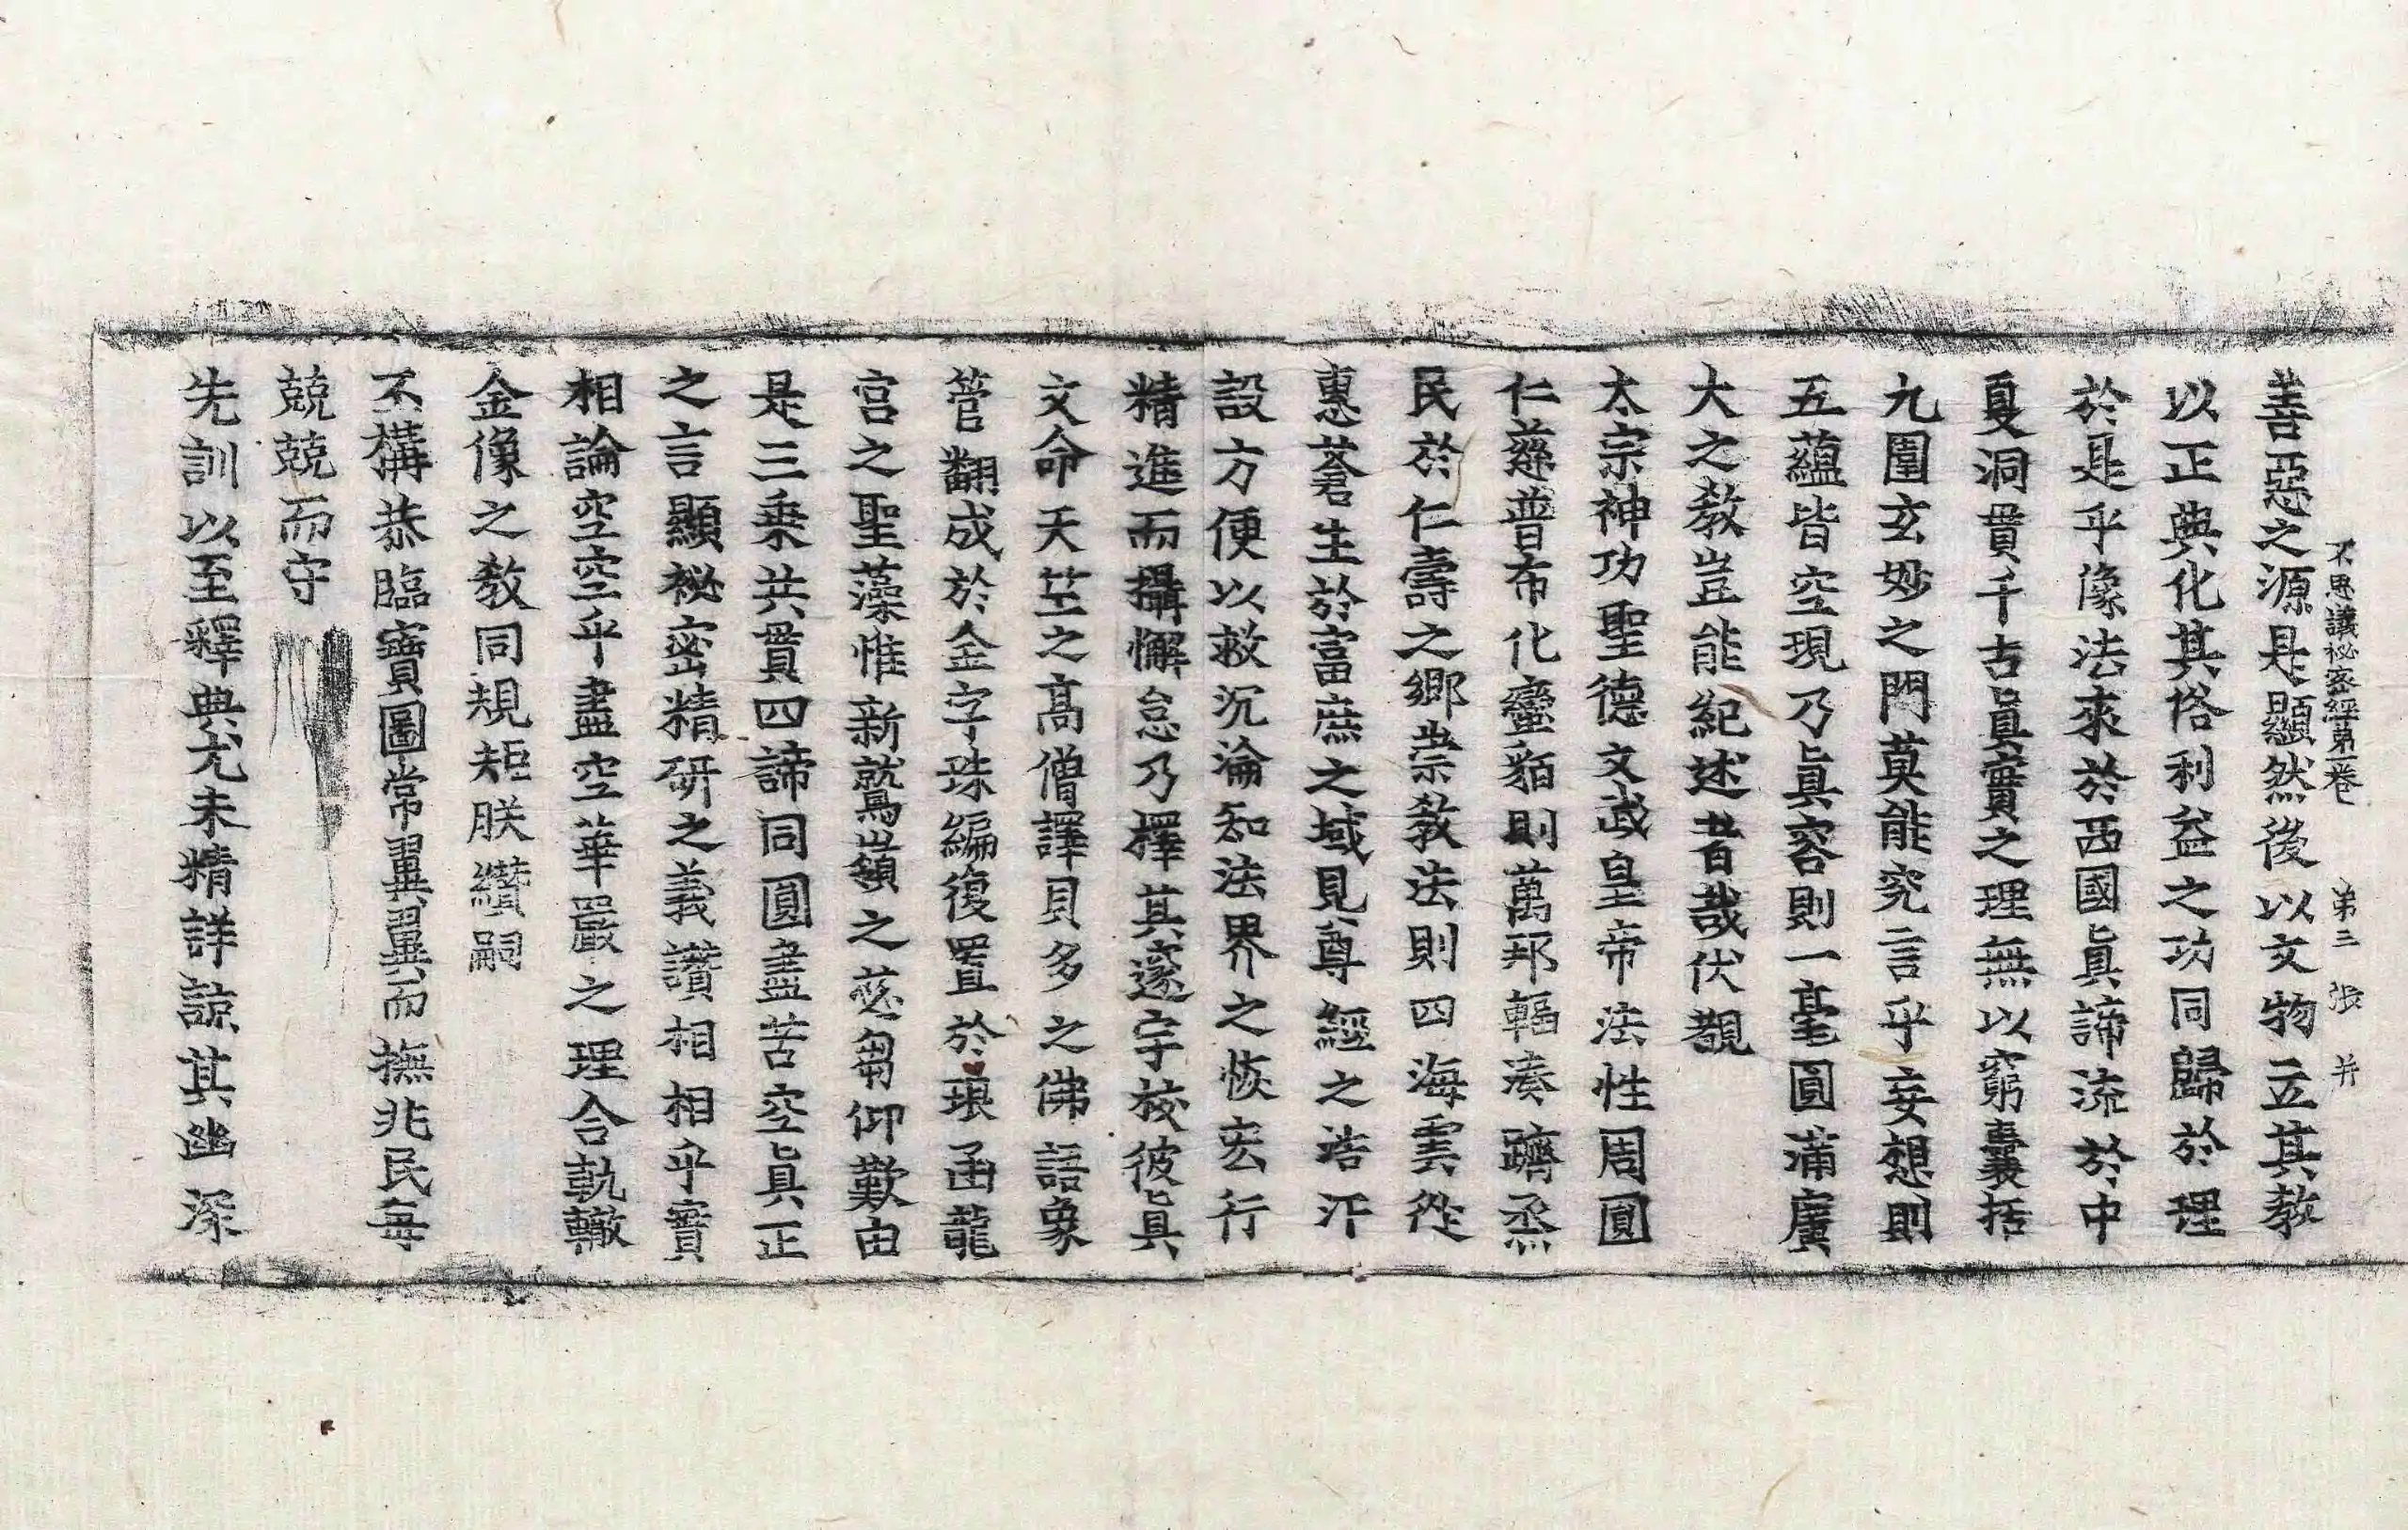 不思議祕密經第一卷 第三張 并
善惡之源是顯然後以文物立其教
以正典化其俗利益之功同歸於理
於是乎像法來於西國眞諦流於中
夏洞貫千古眞實之理無以窮囊括
九圍玄妙之門莫能究言乎妄想則
五蘊皆空現乃眞容則一毫圓滿廣
大之教豈能紀述者哉伏覩
太宗神功聖德文武皇帝法性周圓
仁慈普布化蠻貊則萬邦輻湊躋烝
民於仁壽之鄉崇教法則四海雲從
惠蒼生於富庶之域見尊經之浩汗
設方便以救沉淪知法界之恢宏行
精進而攝懈怠乃擇其邃宇校彼眞
文命天竺之高僧譯貝多之佛語象
管翻成於金字珠編復置於琅函龍
宮之聖藻惟新鷲嶺之苾芻仰歎由
是三乘共貫四諦同圓盡苦空眞正
之言顯祕密精研之義讚相相乎實
相論空空乎盡空華嚴之理合軌轍
金像之教同規矩朕纘嗣
不構恭臨寶圖常翼翼而撫兆民每
兢兢而守
先訓以至釋典尤未精詳諒其幽深